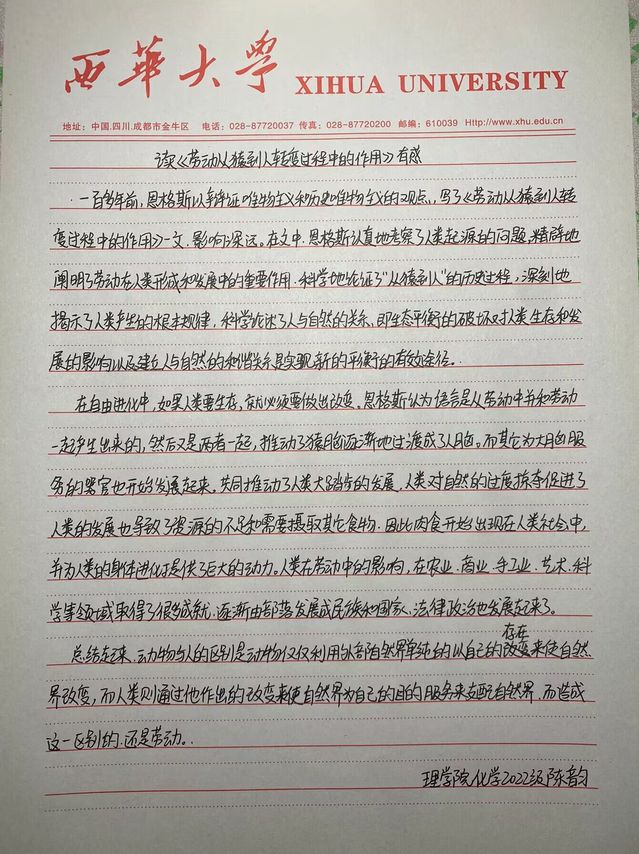 西華大學 XIHUA UNIVERSITY
地址：中国.四川.成都市金牛区 电话：028-87720037 传真：028-87720200 邮编：610039 Http://www.xhu.edu.cn
读《劳动从猿到人转变过程中的作用》有感
一百多年前，恩格斯以辩证唯物主义和历史唯物主义的观点，写了《劳动从猿到人转
变过程中的作用》一文，影响深远。在文中，恩格斯认真地考察了人类起源的问题，精辟地
阐明了劳动在人类形成和发展中的重要作用，科学地论证了“从猿到人”的历史过程，深刻地
揭示了人类产生的根本规律，科学论述了人与自然的关系，即生态平衡的破坏对人类生存和发
展的影响以及建立人与自然的和谐关系是实现新的平衡的有效途径。
在自由进化中，如果人类要生存，就必须要做出改变。恩格斯认为语言是从劳动中并和劳动
一起产生出来的，然后又是两者一起，推动了猿脑逐渐地过渡成了人脑。而其它为大脑服
务的器官也开始发展起来。共同推动了人类大踏步的发展，人类对自然的过度掠夺促进了
人类的发展也导致了资源的不足和需要摄取其它食物，因此肉食开始出现在人类社会中，
并为人类的身体进化提供了巨大的动力。人类在劳动中的影响，在农业、商业、手工业、艺术、科
学等领域取得了很多成就，逐渐由部落发展成民族和国家、法律政治也发展起来了。
总结起来，动物与人的区别是动物仅仅利用外部自然界单纯的以自己的存在来使自然
界改变，而人类则通过他作出的改变来使自然界为自己的目的服务来支配自然界，而造成
这一区别的，还是劳动。
理学院化学2022级陈韵